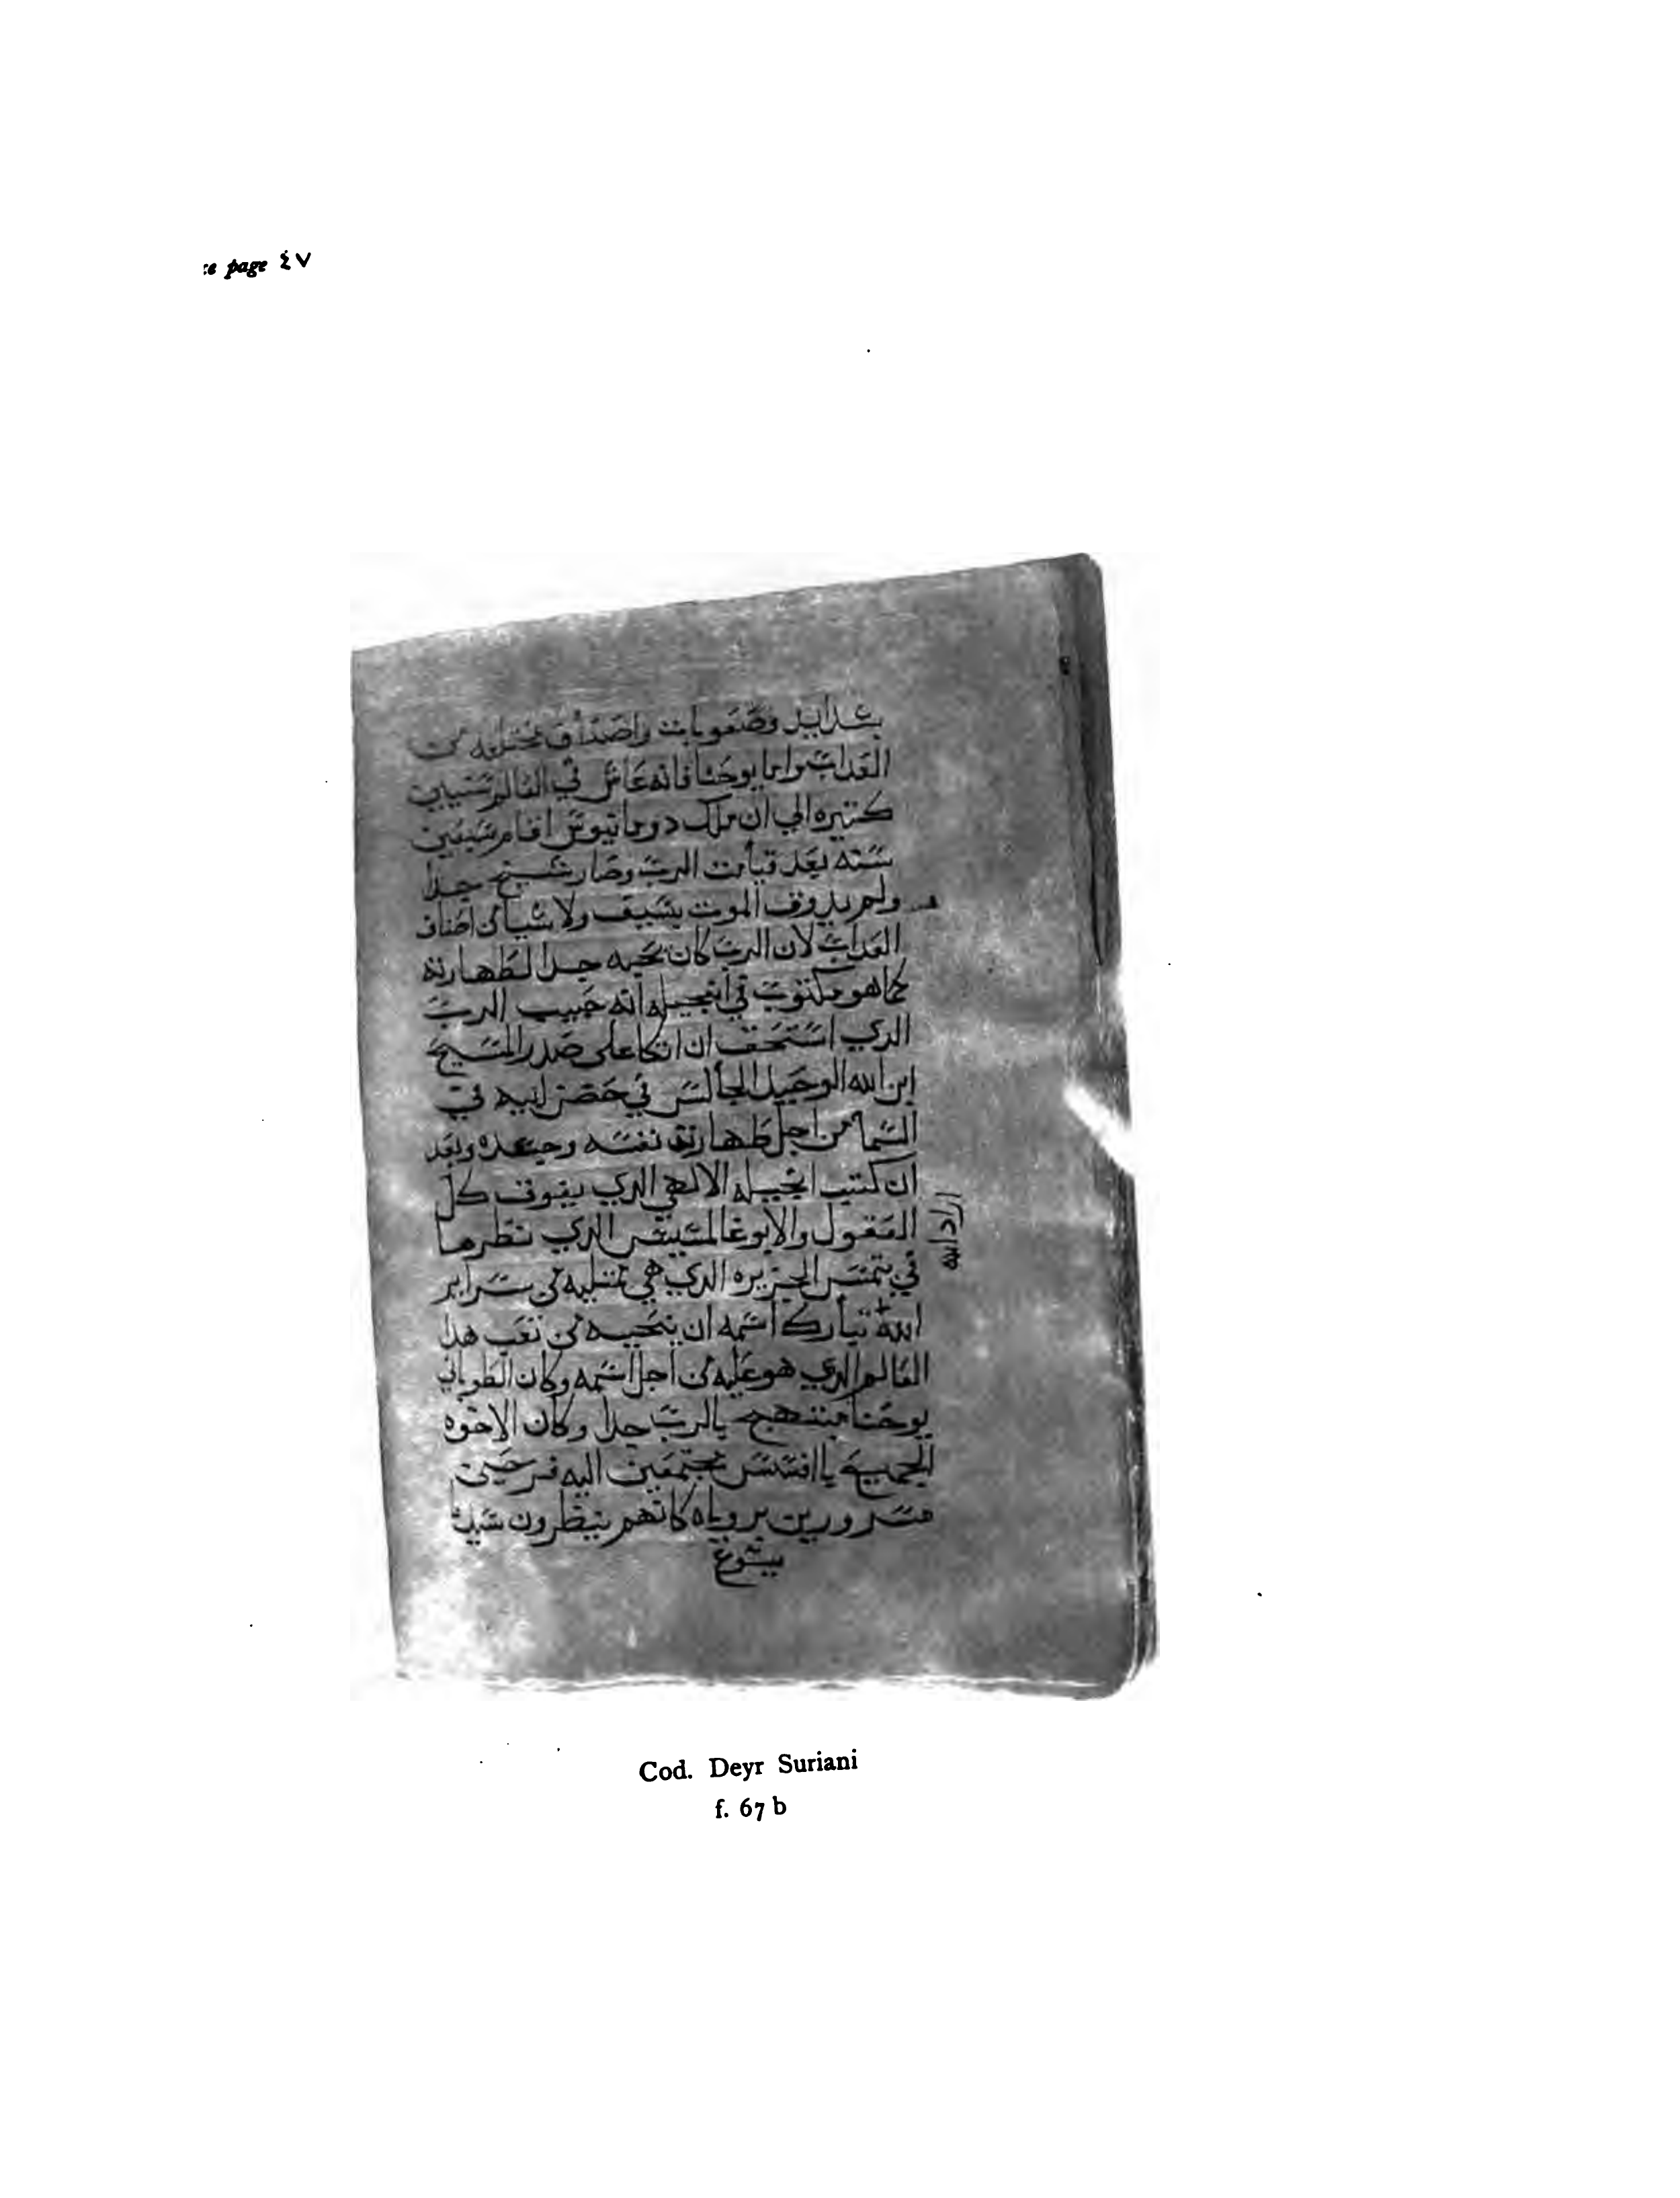 :e page ٤٧
بشدايد وصعوبات واصناف مختلفه من
العداب واما يوحنا فانه عاش في العالم سنين
كتيره الي ان ملك دوماتيوس اقام سبعين
سنه بعد قيامت الرب وصار شيخ جدا
ولم يدوق الموت بسيف ولا شيا من اصناف
العداب لان الرب كان يحبه جدا لطهارته
كما هو مكتوب في انجيله انه حبيب الرب
الدي استحق ان اتكا على صدر المسيح
ابن الله الوحيد الجالس في حضن ابيه في
السما من اجل طهارة نفسه وجسده وبعد
ان كتب انجيله الالهي الدي يفوق كل
العقول والابوغالمسيس الدي نظرها
في بتمس الجزيره الدي هي ممتليه من سراير
الله تبارك اسمه ان ينحيه من تعب هدا
العالم الدي هو عليه من اجل اسمه وكان الطوباني
يوحنا مبتهج بالرب جدا وكان الاخوه
الجميع باافسس مجتمعين اليه فرحين
مسرورين بروياه كانهم ينظرون سيدنا
يسوع
اراد الله
Cod. Deyr Suriani
f. 67 b